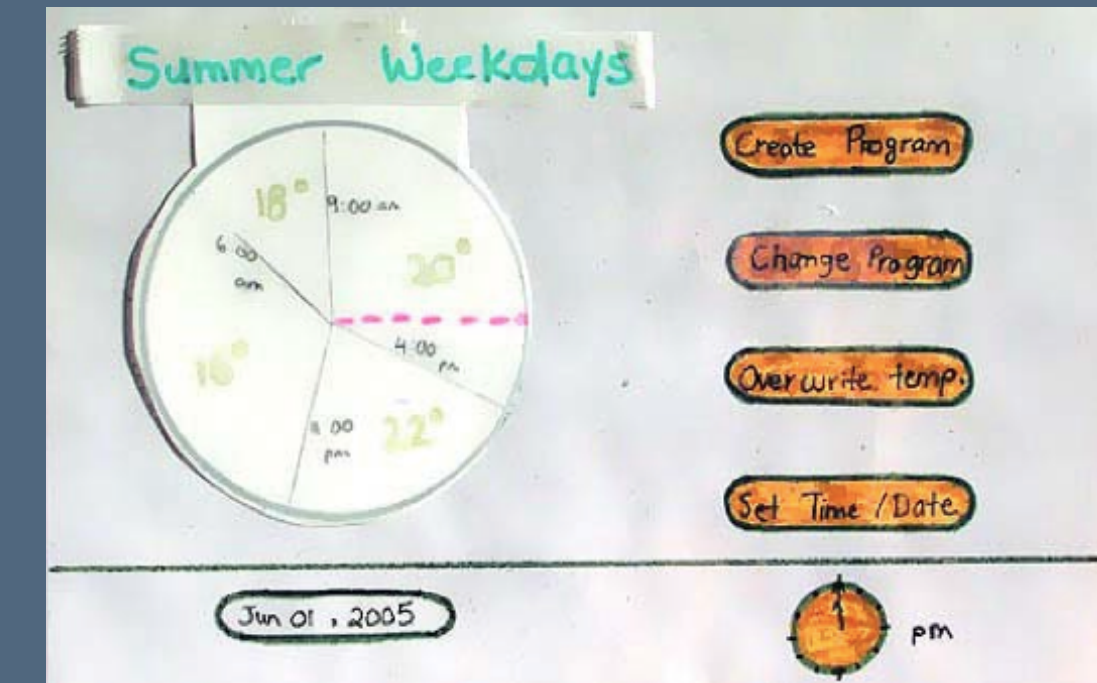 Summer Weekdays
18°
9:00 am
6:00
am
20°
4:00
pm
16°
pm
22°
Create Program
Change Program
Overwrite temp.
Set Time / Date
Jun 01 , 2005
pm